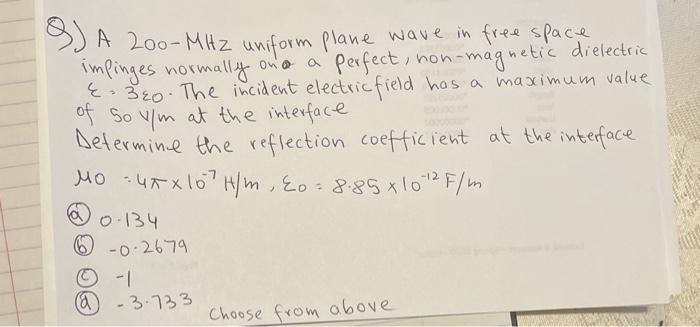 Q) A 200-MHz uniform plane wave in free space
impinges normally on a perfect, non-magnetic dielectric
ε = 3ε0. The incident electric field has a maximum value
of 50 V/m at the interface
Determine the reflection coefficient at the interface
μ0 = 4π×10⁻⁷ H/m, ε0 = 8.85×10⁻¹² F/m
ⓐ 0.134
ⓑ -0.2679
ⓒ -1
ⓓ -3.733 choose from above